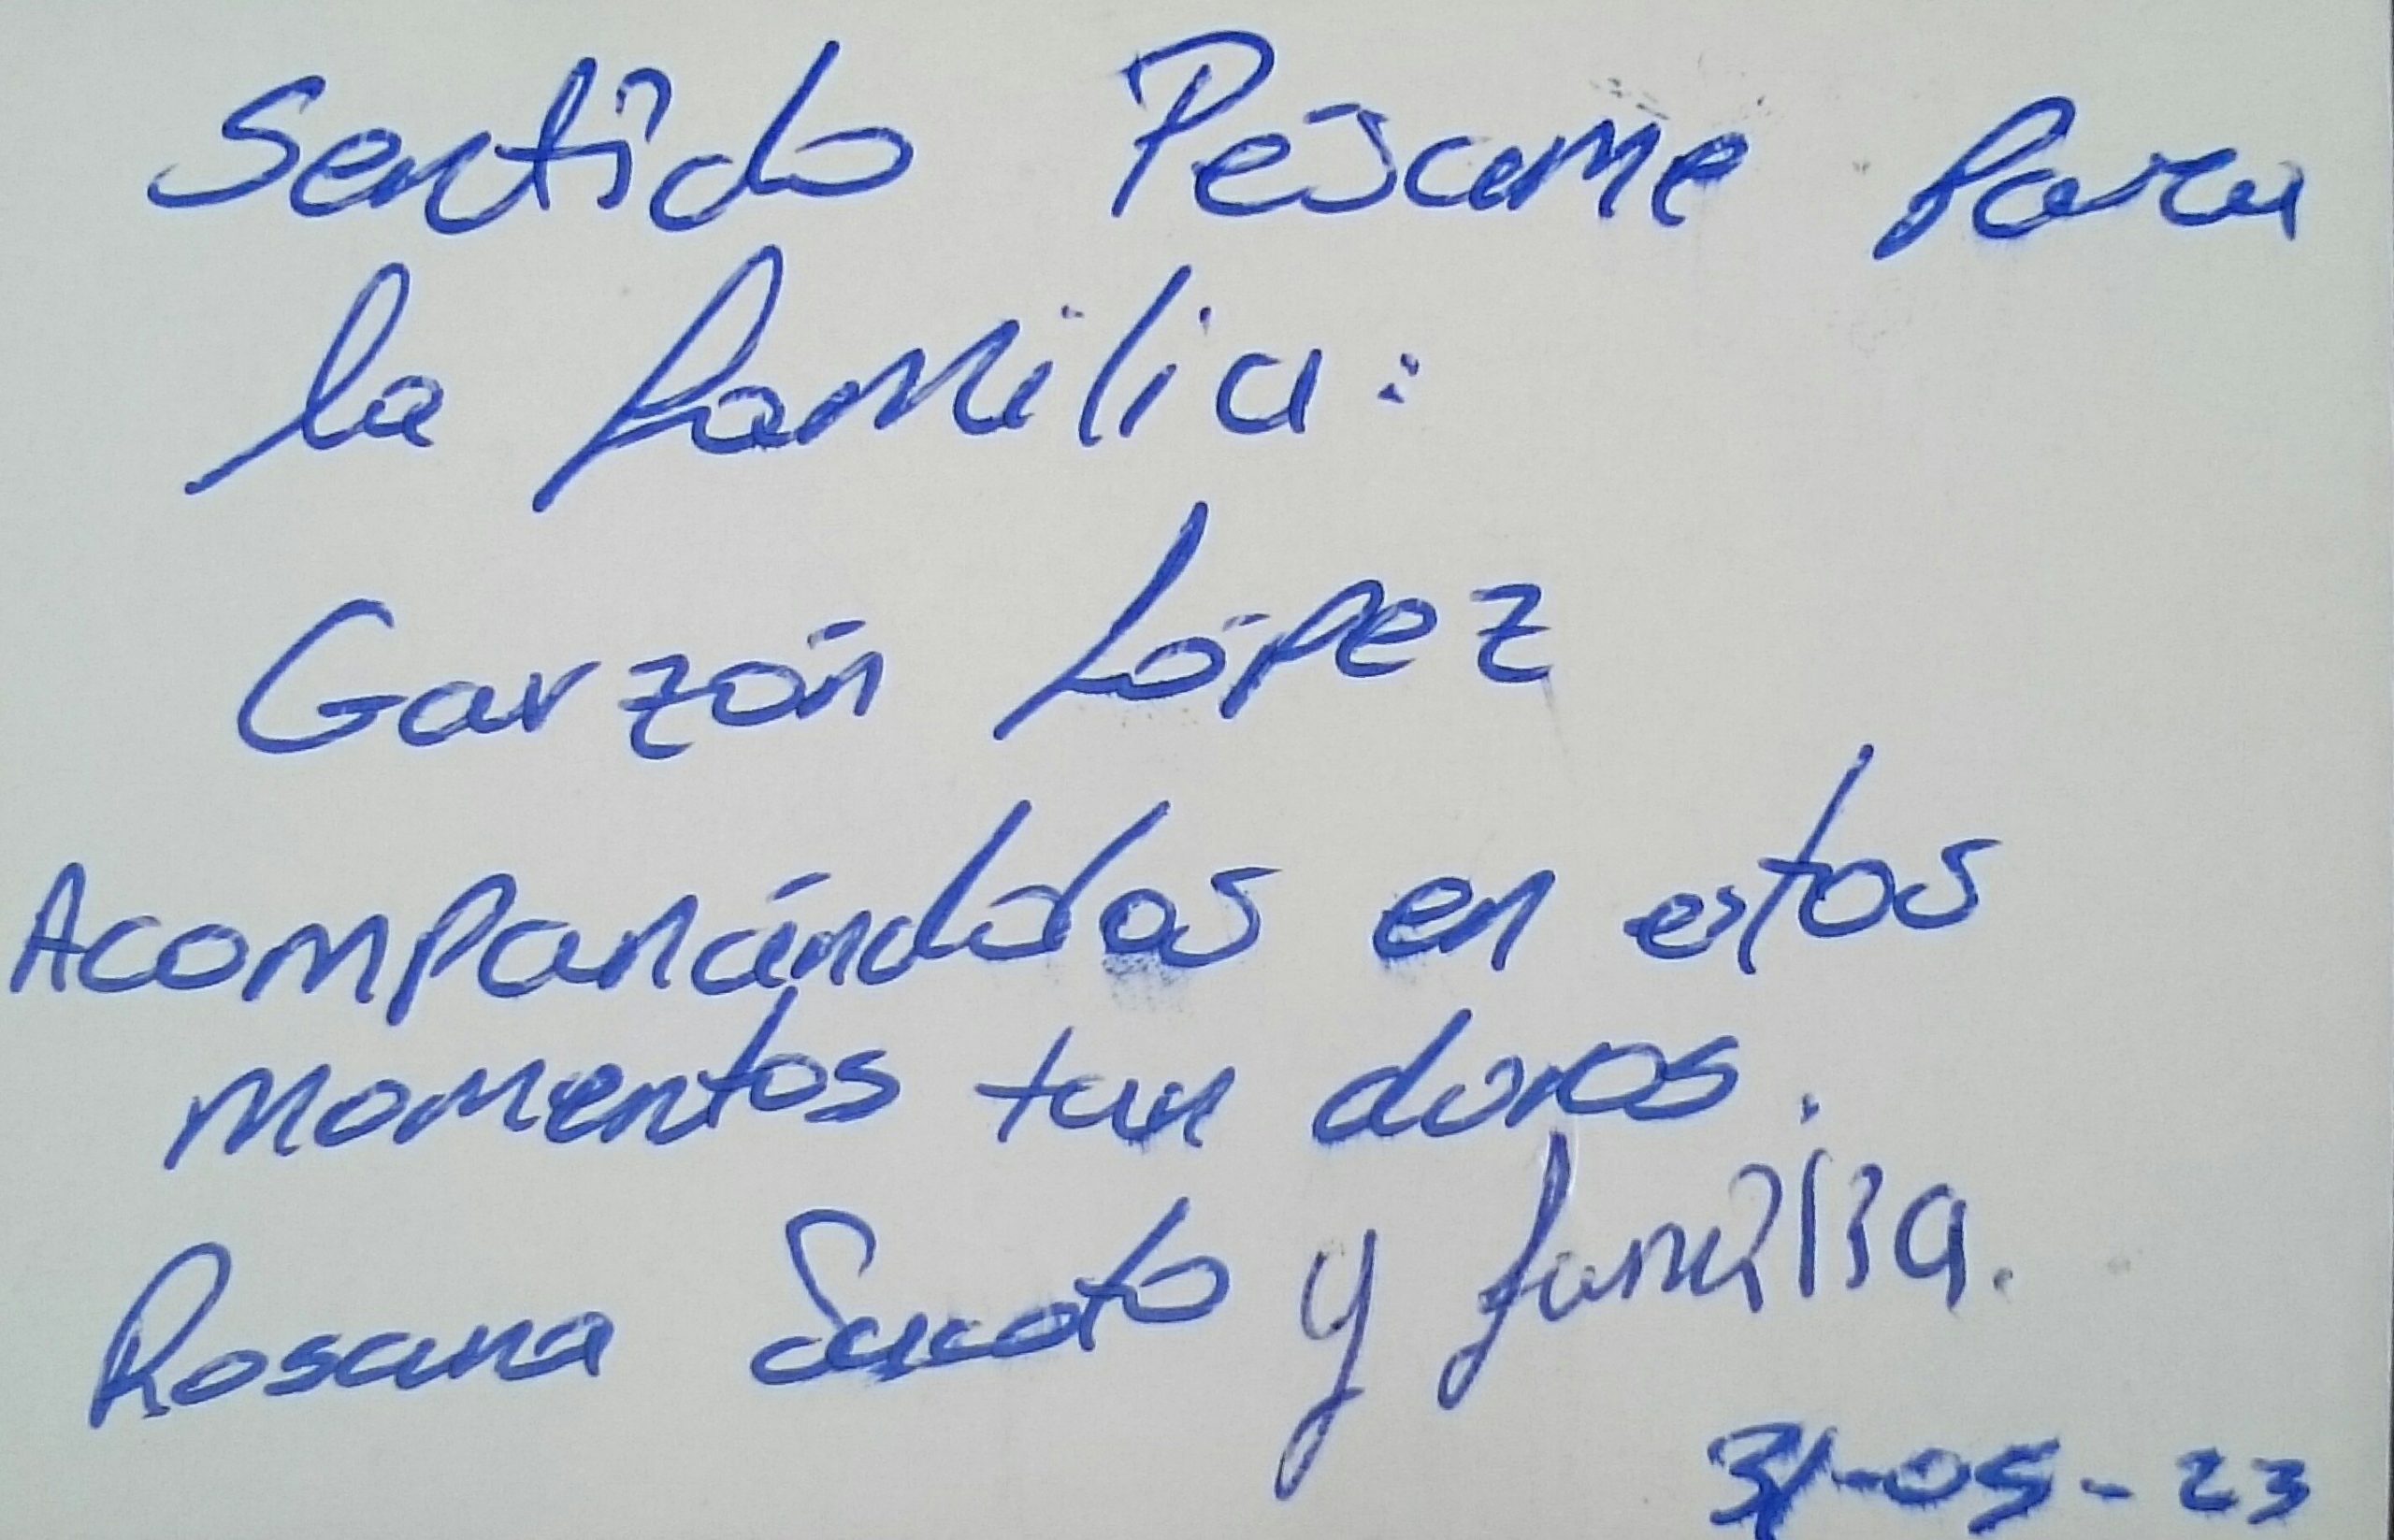 Sentido Pésame para
la familia:
Garzón López
Acompanándolos en estos
momentos tan duros.
Rosana y familia.
31-05-23